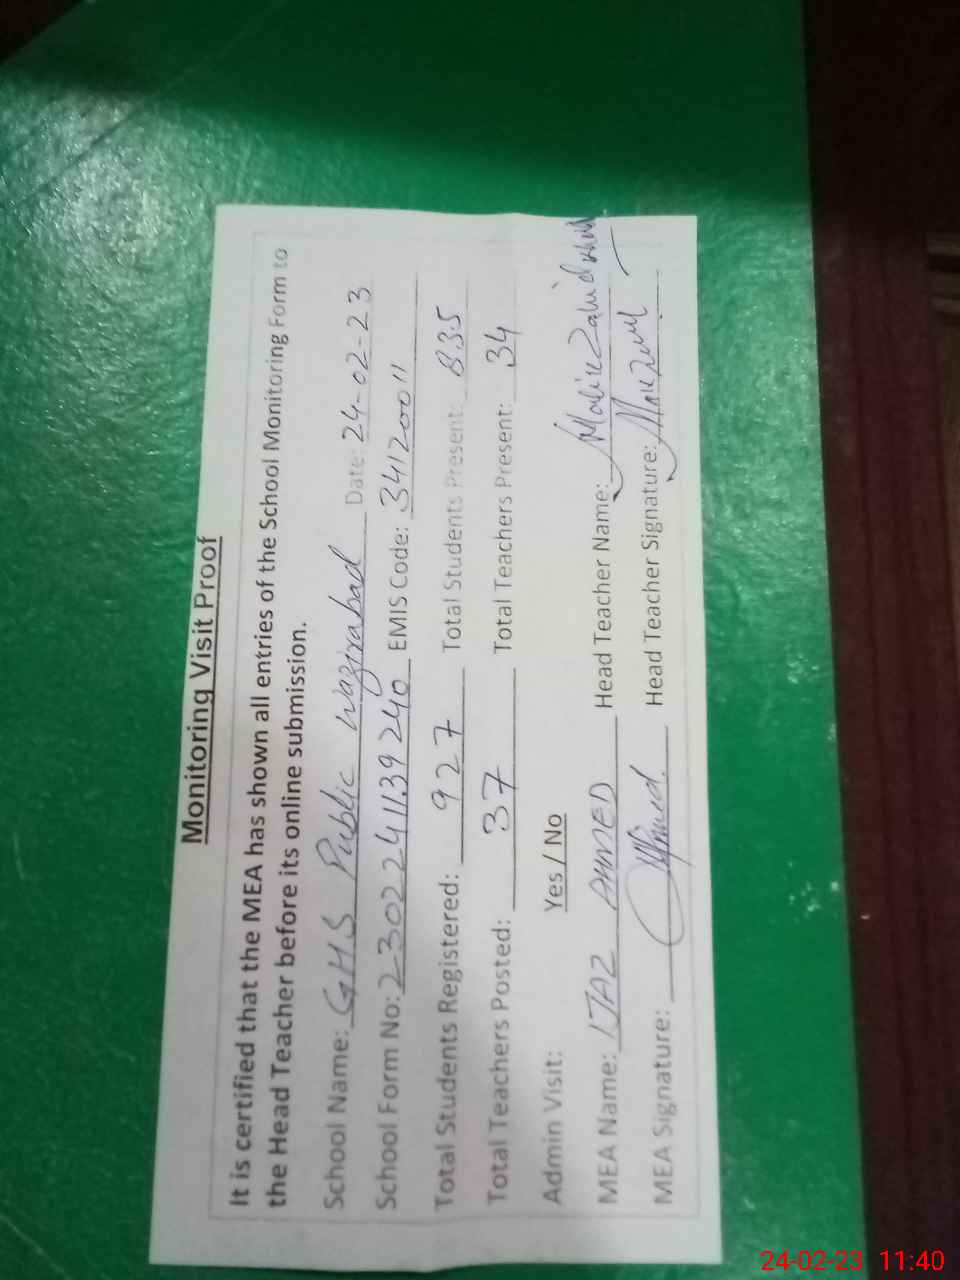 Monitoring Visit Proof
It is certified that the MEA has shown all entries of the School Monitoring Form to
the Head Teacher before its online submission.
School Name: GHS Public Wazirabad Date: 24-02-23
School Form No: 2302241139240 EMIS Code: 34120011
Total Students Registered: 927 Total Students Present: 835
Total Teachers Posted: 37 Total Teachers Present: 34
Admin Visit: Yes / No
MEA Name: IJAZ AHMED Head Teacher Name: Zahid
MEA Signature: Head Teacher Signature:
24-02-23 11:40